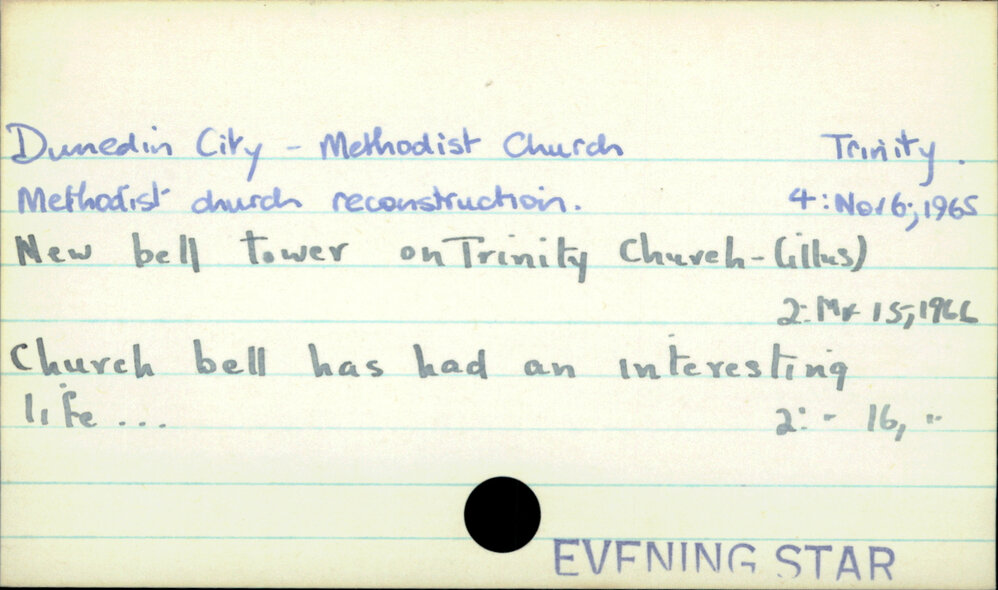 Dunedin City - Methodist Church Trinity.
Methodist church reconstruction. 4: Nov 6, 1965
New bell tower on Trinity Church - (illus)
2: Mr 15, 1966
Church bell has had an interesting
life ... 2: " 16, "
EVENING STAR